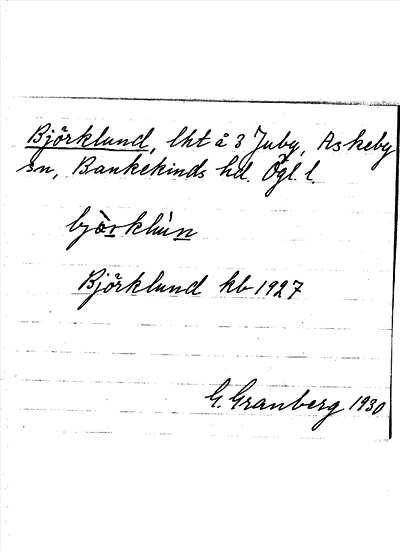 Björklund, lht å 3 Juby, Askeby
sn, Bankekinds hd. Ögl l.
Björklund kb 1927
G. Granberg 1930